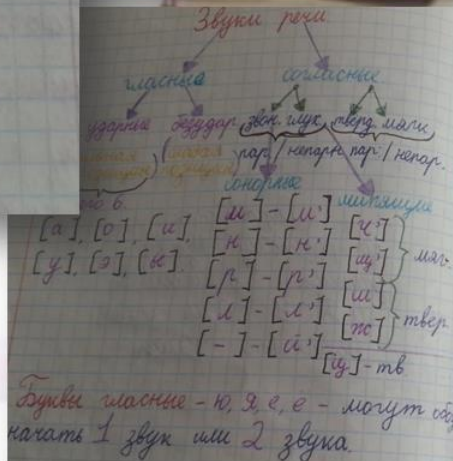 Звуки речи
гласные согласные
ударные безудар. звон. глух. тверд. мягк.
пар. / непарн. пар. / непар.
сонорные шипящие
его 6.
[м] - [м'] [ч']
[а], [о], [и], [н] - [н'] [щ'] мяг.
[у], [э], [ы]. [р] - [р'] [ш]
[л] - [л'] [ж] твер.
[-] - [й'] [ц] - тв.
Буквы гласные - ю, я, е, ё - могут
начать 1 звук или 2 звука.